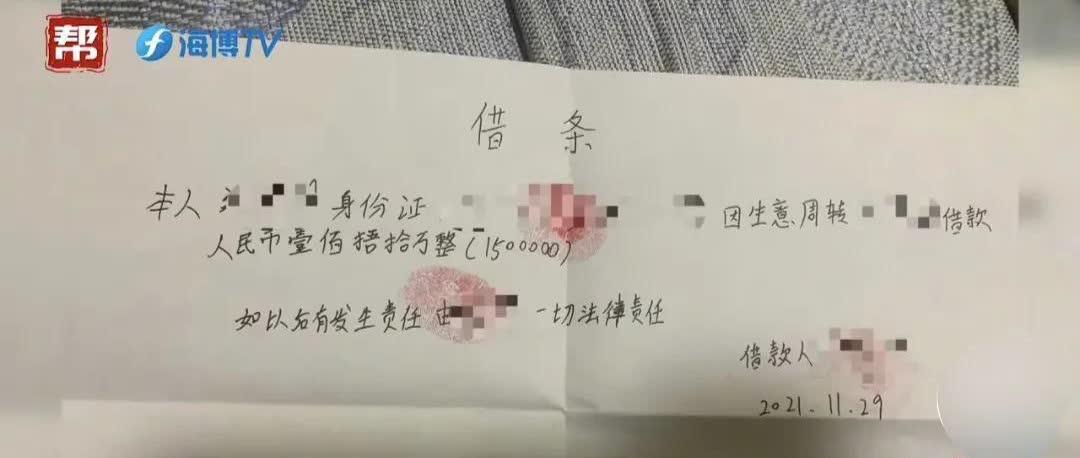 帮 海博TV
借条
本人 身份证 因生意周转 借款
人民币壹佰捂拾万整(1500000)
如以后有发生责任由 一切法律责任
借款人
2021.11.29